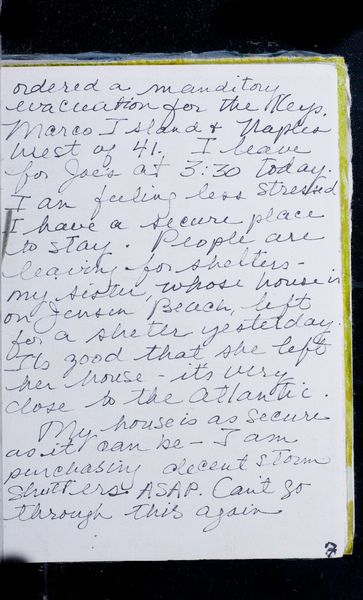 ordered a manditory
evacuation for the Keys,
Marco Island & Naples
West of 41. I leave
for Joe's at 3:30 today.
I am feeling less stressed
I have a secure place
to stay. People are
leaving for shelters -
my sister, whose house is
on Jensen Beach, left
for a shelter yesterday.
Its good that she left
her house - its very
close to the Atlantic.
My house is as secure
as it can be - I am
purchasing decent storm
shutters ASAP. Can't go
through this again
7